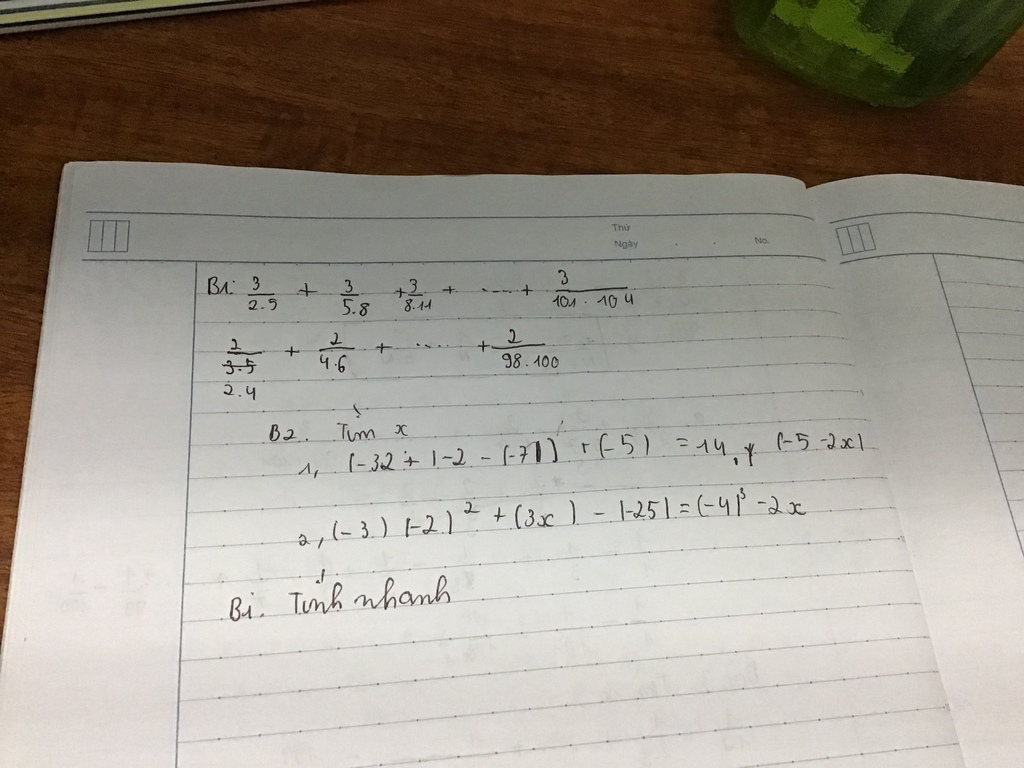 Thứ
Ngày . . No.
B1: 3/2.5 + 3/5.8 + 3/8.11 + ..... + 3/101.104
2/2.4 + 2/4.6 + ..... + 2/98.100
B2. Tìm x
1, (-32 + |-2 - (-7)|) + (-5) = 14 (-5 -2x)
2, (-3) (-2)² + (3x) - |-25| = (-4)³ -2x
Bi. Tính nhanh